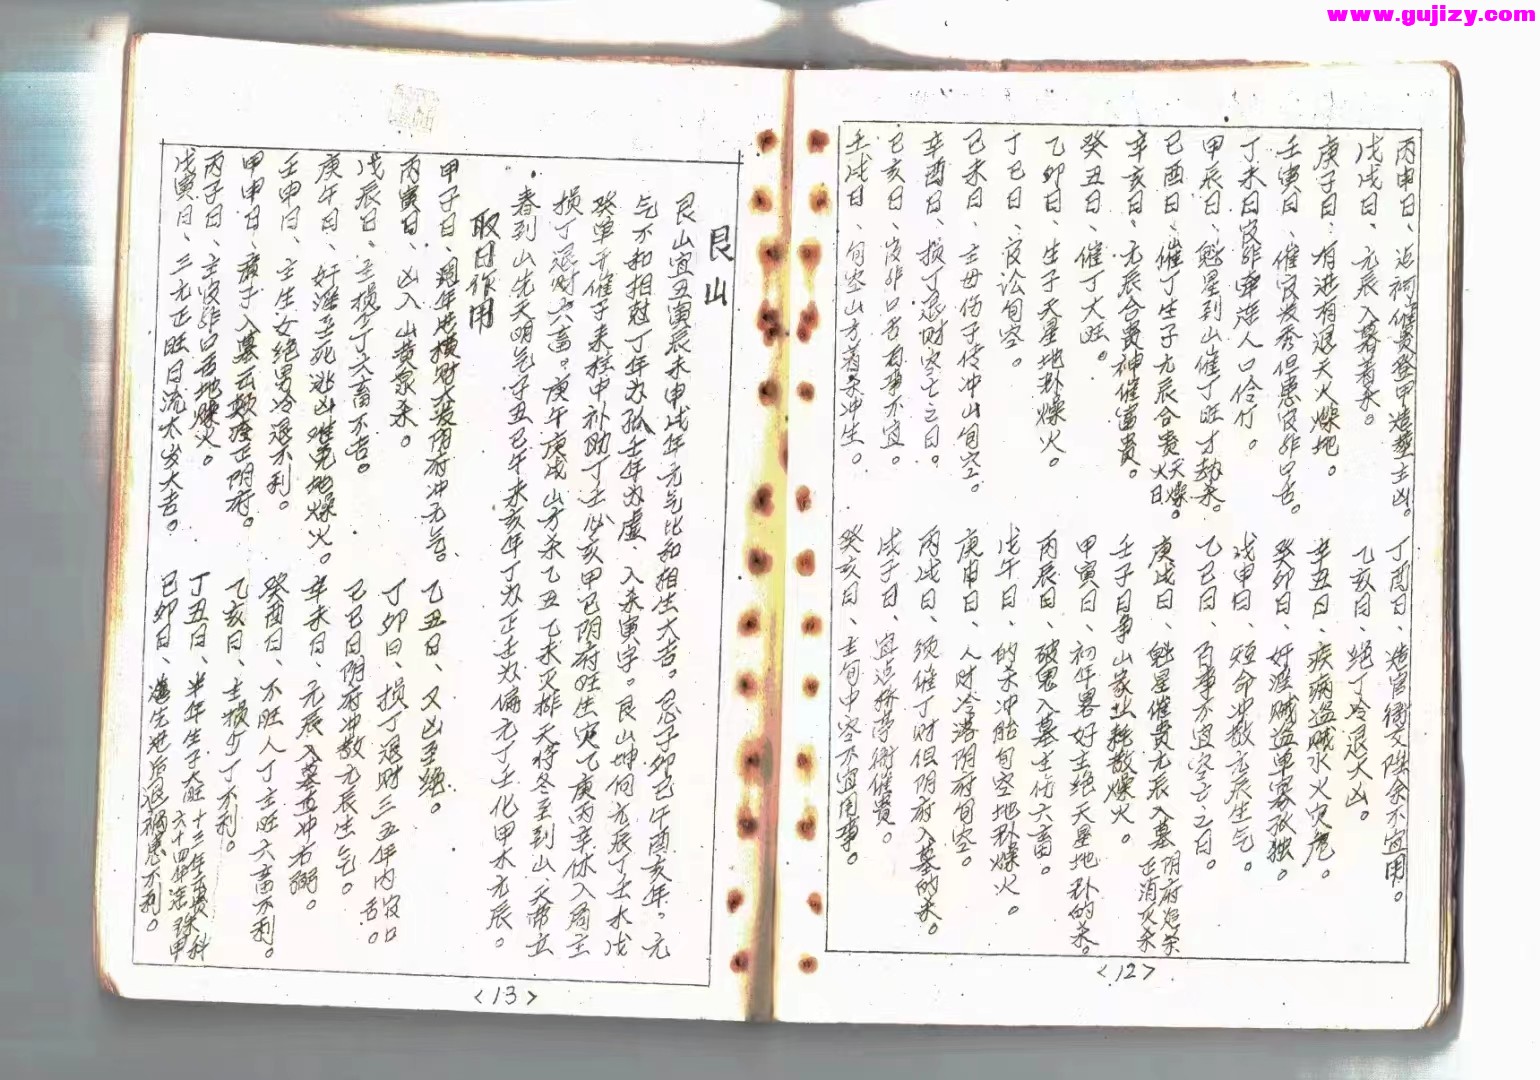 www.gujizy.com
丙申日、
戊戌日、元辰入墓着杀。
庚子日、有进有退天火燥地。
壬寅日、催官发秀但患官非口舌。
丁未日官非牵连人口伶仃。
甲辰日、魁星到山催丁旺才劫杀。
己酉日、催丁生子元辰合贵天燥火日
辛亥日、元辰合贵神催富贵。
癸丑日、催丁大旺。
乙卯日、生子天星地卦燥火。
丁巳日、官讼旬空。
己未日、主母伤子传冲山旬空。
辛酉日、损丁退财空亡之日。
己亥日、官非口舌百事不宜。
壬戌日、旬空山方着杀冲生。
丁酉日、
乙亥日、绝丁冷退大凶。
辛丑日、疾病盗贼水火灾危。
癸卯日、奸淫贼盗单寡孤独。
戊申日、短命冲散元辰生气。
乙巳日、百事不宜空亡之日。
庚戌日、魁星催贵元辰入墓阴府
正消灭杀
壬子日争山家
甲寅日、初年畧好主绝天星地卦的杀。
丙辰日、破鬼入墓主伤六畜。
戊午日、的杀冲胎旬空地卦燥火。
庚申日、人财冷落阴府旬空。
丙戌日、须催丁财但阴府入墓的杀。
戊子日、宜点桥亭衙催贵。
癸亥日、主旬中空不宜用事。
<12>
艮山
艮山宜丑寅辰未申戌年元气比和相生大吉。忌子卯巳午酉亥年。元
气不和相怼丁年为孤壬年为虚、入来寅字。艮山坤向元辰丁壬水戊
癸单于催子来拄中补助丁壬必亥甲己阴府旺生灾乙庚丙辛休入局主
损丁退财六畜。庚午庚戌山方杀乙丑乙未灭排天将冬至到山天帝立
春到山先天明气子丑巳午未亥年丁为正壬为偏元丁壬化甲木元辰。
取日作用
甲子日、周年进横财大发阴府冲元气。
丙寅日、凶入山黄泉杀。
戊辰日、主损少丁六畜不吉。
庚午日、奸淫至死逃凶难免地燥火。
壬申日、主生女绝男冷退不利。
甲申日、癀子入墓云颠痖正阴府。
丙子日、主官非口舌地燥火。
戊寅日、三元正旺日流太岁大吉。
乙丑日、又凶至绝。
丁卯日、损丁退财三五年内官口舌。
己巳日阴府冲散元辰生气。
辛未日、元辰入墓正冲右弼。
癸酉日、不旺人丁主旺六畜不利。
乙亥日、主损少丁不利。
丁丑日、半年生子大旺十三年出贵朱科
六十四年活登甲
己卯日、進先进后退祸患不利。
<13>